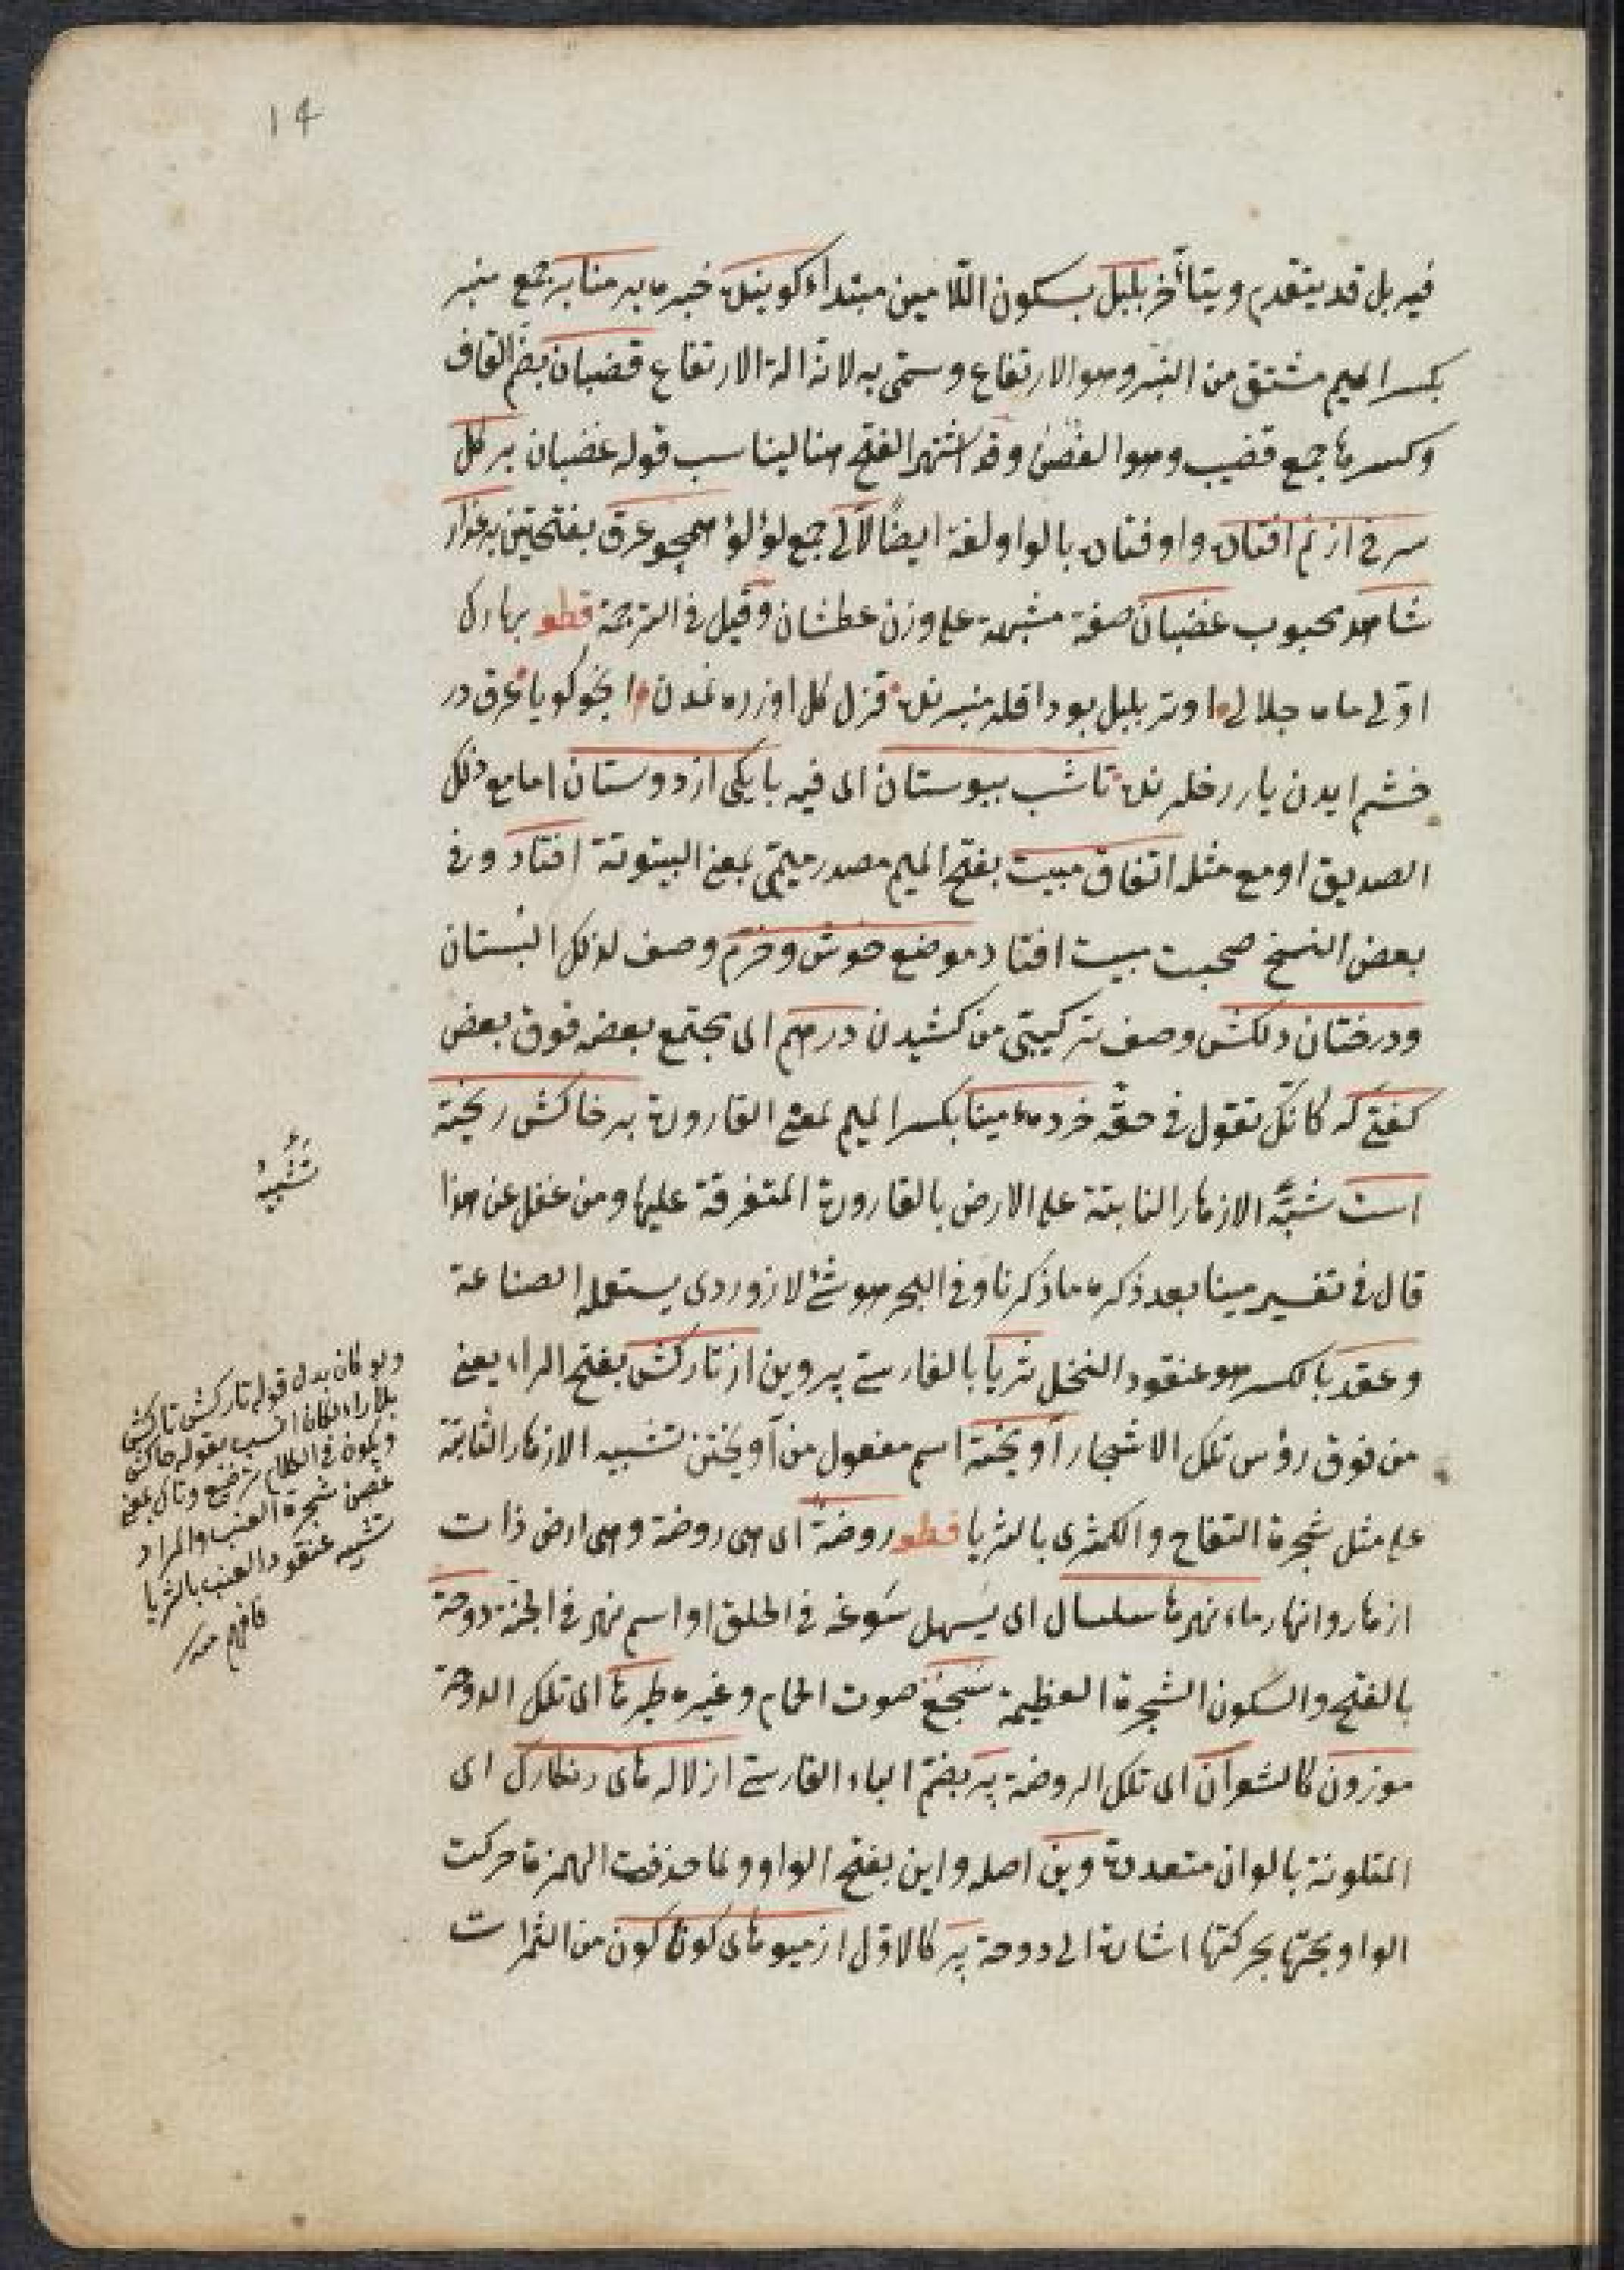 14
فیه بل قد یتقدم ویتأخر بلبل بسکون اللامین مبتداء کوینده خبره بر منابر جمع منبر
بکسر المیم مشتق من النبر وهو الارتفاع وسمّی به لانه الة الارتفاع قضبان بضم القاف
وکسرها جمع قضیب وهو الغصن وقد اشتهر الفتح هنا لیناسب قوله غضبان بر کل
سرخ از نم افتان واوفتان بالواو لغة ایضًا لآلی جمع لؤلؤ همچو عرق بفتحتین بر عذار
شاهد محبوب غضبان صفة مشبهة علی وزن عطشان وقیل فی الترجمة قطعه بهارک
اوّلی ماه جلالی اوتر بلبل بوداقلر منبرنده قزل کل اوزره نمدن انجو کویا عرق در
خشم ایدن یار رخلرنده تا شب ببوستان ای فیه با یکی از دوستان ای مع ذلک
الصدیق او مع مثله اتفاق مبیت بفتح المیم مصدر میمیّ بمعنی البیتوتة افتاد وفی
بعض النسخ صحبت مبیت افتاد موضع خوش وخرّم وصف لذلک البستان
ودرختان دلکش وصف ترکیبیّ من کشیدن درهم ای مجتمع بعضه فوق بعض
کفتی که کانّک تقول فی حقّه خرده مینا بکسر المیم بمعنی القارورة بر خاکش ریخته
است شبّه الازهار النابتة علی الارض بالقارورة المتفرقة علیها ومن غفل عن هذا
قال فی تفسیر مینا بعد ذکره ما ذکرنا وفی البحر هو شئ لازوردی یستعمله الصناعة
وعقد بالکسر هو عنقود النخل ثریا بالفارسیّ پروین از تارکش بفتح الراء یعنی
من فوق رؤس تلک الاشجار آویخته اسم مفعول من آویختن تشبیه الازهار الثابتة
علی مثل شجرة التفاح والکمثری بالثریا قطعه روضة ای هی روضة وهی ارض ذات
ازهار وانهار ماء نهرها سلسال ای یسهل سوغه فی الحلق او اسم نهر فی الجنة دوحة
بالفتح والسکون الشجرة العظیمة سجع صوت الحمام وغیره طیرها ای تلک الدوحة
موزون کالشعر آن ای تلک الروضة پر بضم الباء الفارسیّ از لاله های رنکارنک ای
المتلونة بالوان متعددة وین اصله واین بفتح الواو ولما حذفت الهمزة حرکت
الواو بحرکتها اشارة الی دوحة پر کالاوّل از میوهای کوناکون من الثمرات
تشبیه
ولو کان بدل قوله تارکش تاکش
بلا راء لکان انسب بقوله خاکش
ویکون فی الکلام ترصیع وتاک بمعنی
غصن شجرة العنب والمراد
تشبیه عنقود العنب بالثریا
فافهم